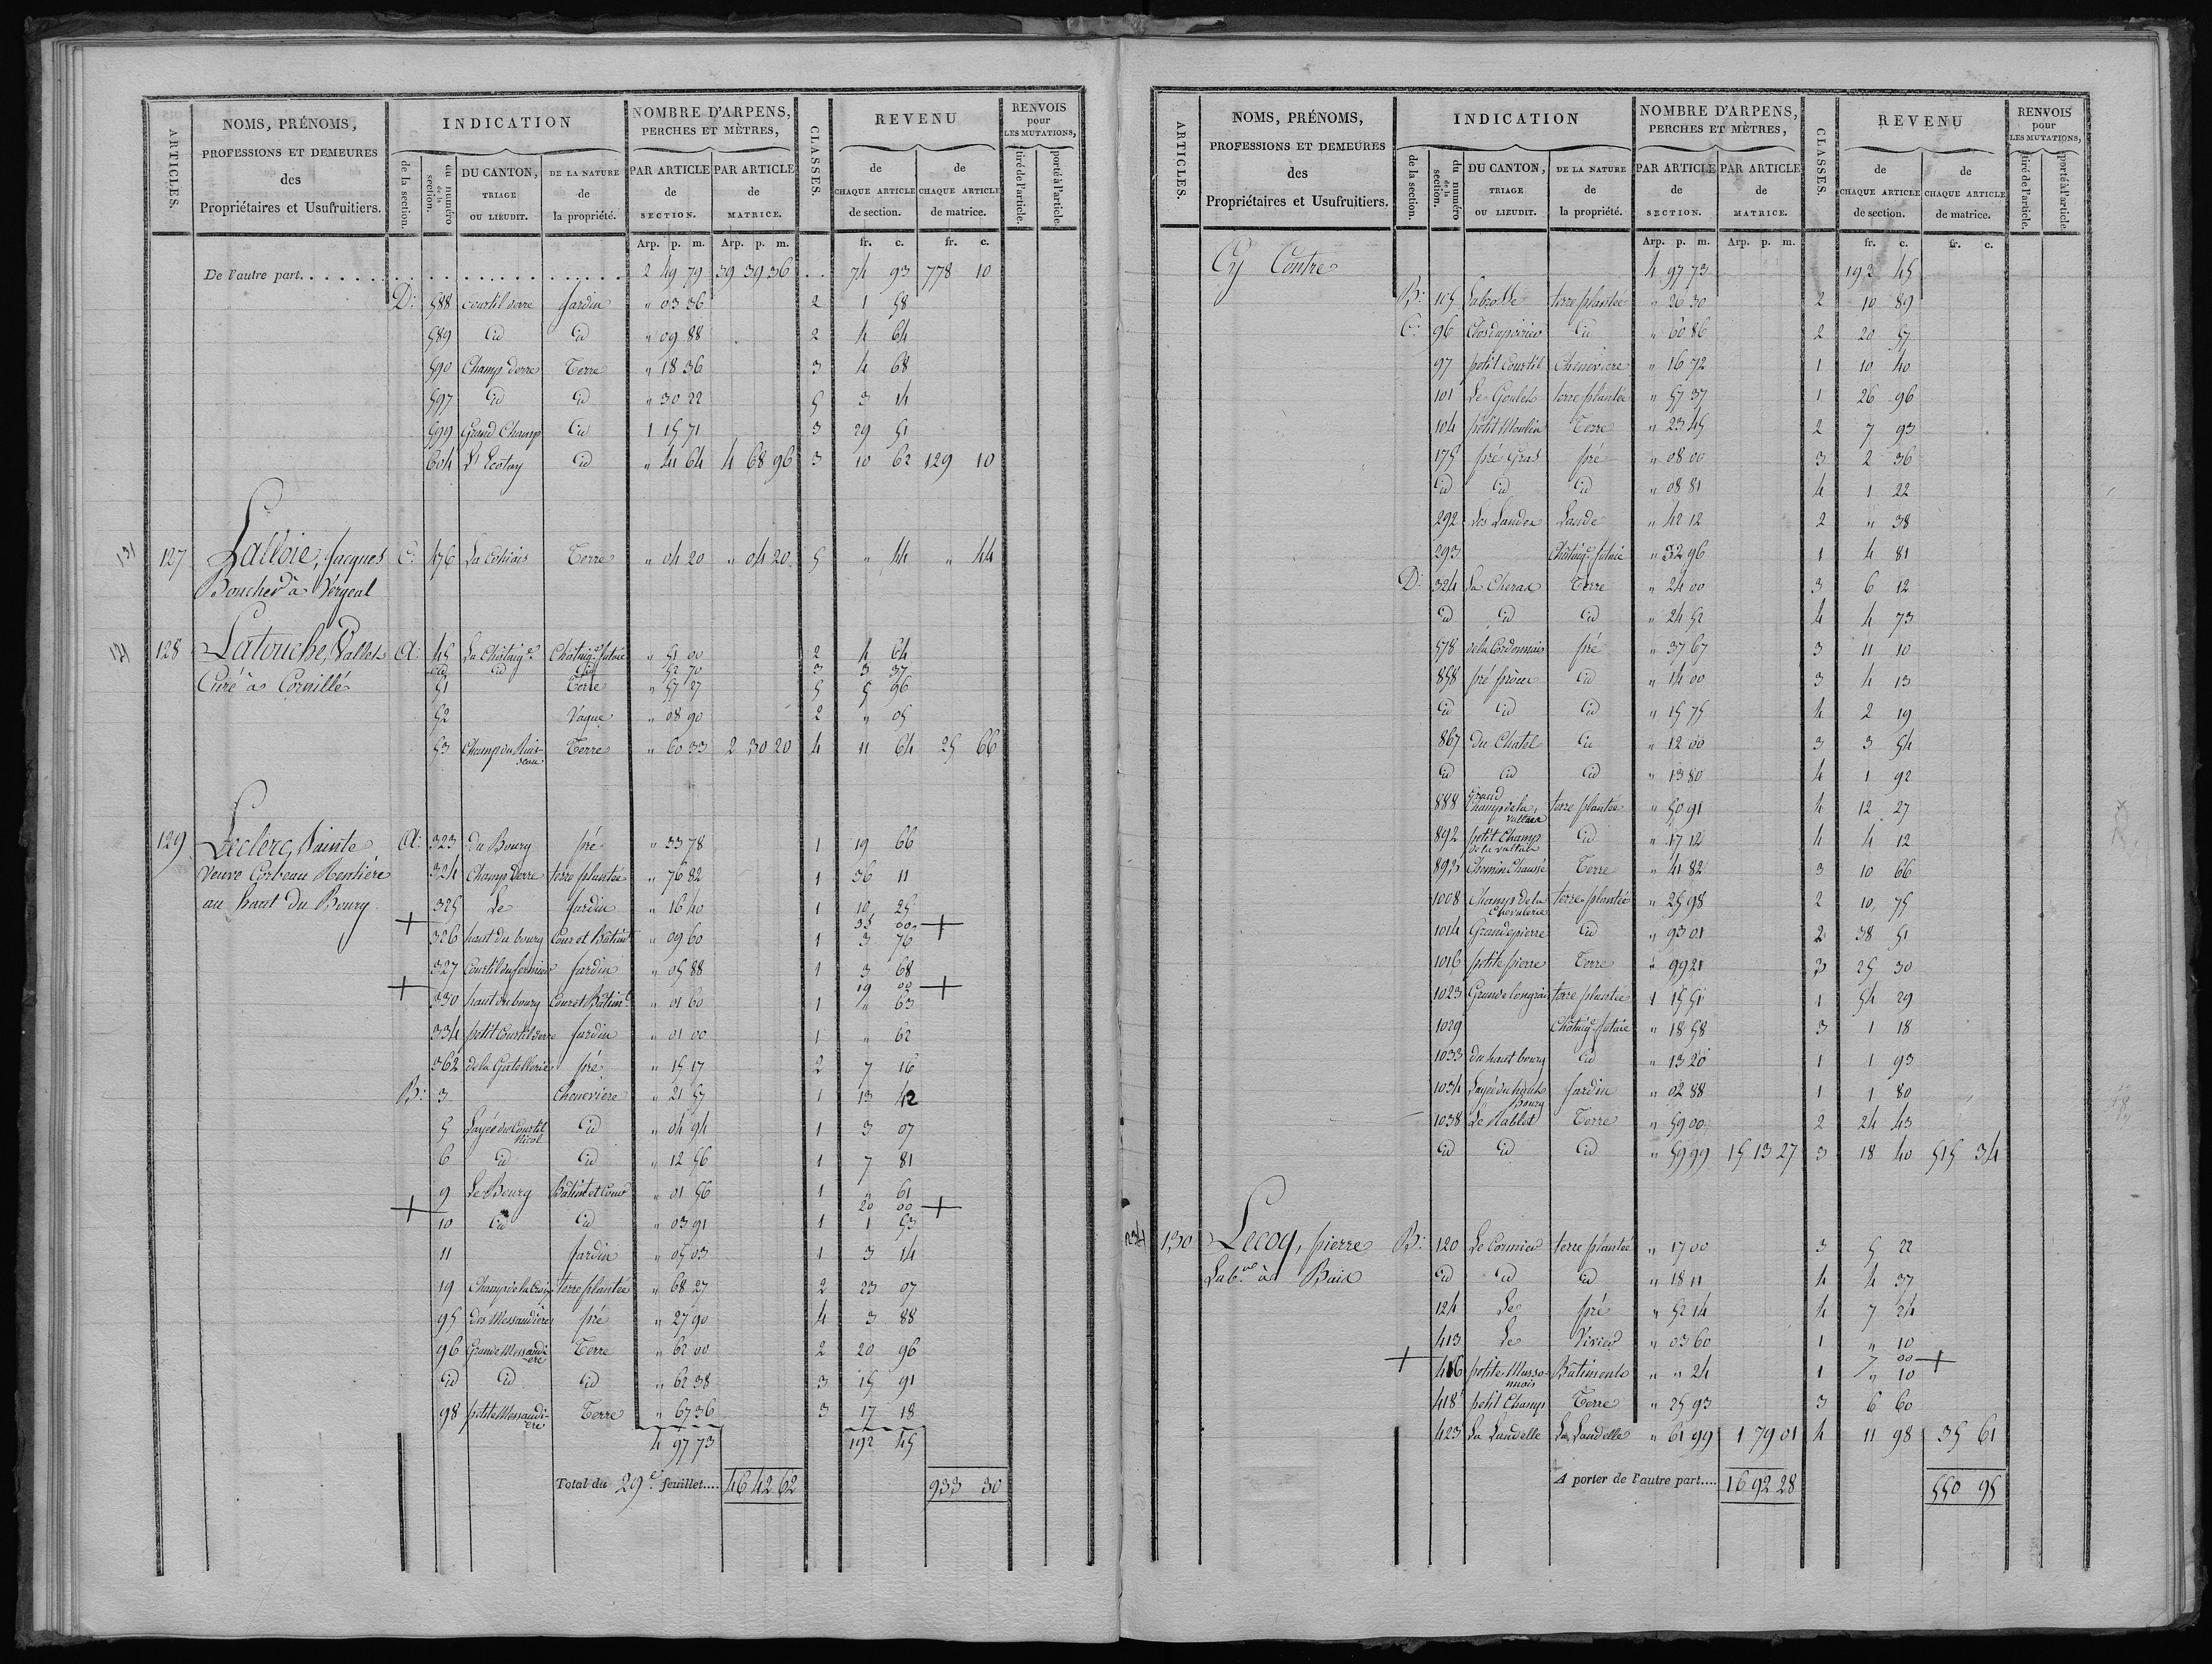 ARTICLES.
NOMS, PRÉNOMS,
PROFESSIONS ET DEMEURES
des
Propriétaires et Usufruitiers.
INDICATION
de la section.
du numéro de la section.
DU CANTON, TRIAGE OU LIEUDIT.
DE LA NATURE de la propriété.
NOMBRE D'ARPENS, PERCHES ET MÈTRES,
PAR ARTICLE de SECTION.
PAR ARTICLE de MATRICE.
CLASSES.
REVENU
de CHAQUE ARTICLE de section.
de CHAQUE ARTICLE de matrice.
RENVOIS pour LES MUTATIONS,
tiré de l'article.
porté à l'article.
Arp. p. m. Arp. p. m. fr. c. fr. c.
De l'autre part 2 49 79 39 39 36 74 93 778 10
D: 588 courtil derre Jardin " 03 36 2 1 58
589 Id Id " 09 88 2 4 64
590 Champ derre Terre " 18 36 3 4 68
597 Id Id " 30 22 5 3 14
599 Grand Champ Id 1 15 71 3 29 51
604 Id " 41 64 4 68 96 3 10 62 129 10
131 127 Lalloie, Jacques C: 476 Terre " 04 20 " 04 20 5 " 44 " 44
Boucher à Vergeal
128 Latouche, Vallet A: 45 La Châtaig.e Châtaig.e futaie " 51 00 2 4 64
Id Id Id " 52 70 3 3 37
Curé à Cornillé 51 Terre " 57 27 5 5 96
52 Vague " 08 90 2 " 05
53 Champ du Ruisseau Terre " 60 33 2 30 20 4 11 64 25 66
129 Leclerc, Sainte A: 323 du Bourg pré " 33 78 1 19 66
Veuve Corbeau Rentière 324 Champ derre terre plantée " 76 82 1 36 11
au haut du Bourg 325 Le Jardin " 16 40 1 10 25
+ 35 00 +
326 haut du bourg Cour et Bâtimt " 09 60 1 3 76
327 Courtil du fermier Jardin " 05 88 1 3 68
+ 19 00 +
330 haut du bourg Cour et Bâtimt " 01 60 1 " 63
334 petit Courtil derre Jardin " 01 00 1 " 62
362 de la Gatellerie pré " 15 17 2 7 16
B: 3 Chenevière " 21 57 1 13 42
5 Layée du Courtil Nicol Id " 04 94 1 3 07
6 Id Id " 12 56 1 7 81
9 Le Bourg Bâtimt et Cour " 01 56 1 " 61
+ 20 00 +
10 Id Id " 03 91 1 1 53
11 Jardin " 05 03 1 3 14
19 Champ de la Croix terre plantée " 68 27 2 23 07
95 des Messaudières pré " 27 90 4 3 88
96 Grande Messaudière Terre " 62 00 2 20 96
Id Id Id " 62 38 3 15 91
98 petite Messaudière Terre " 67 36 3 17 18
4 97 73 192 45
Total du 29.e feuillet.... 46 42 62 933 30
ARTICLES.
NOMS, PRÉNOMS,
PROFESSIONS ET DEMEURES
des
Propriétaires et Usufruitiers.
INDICATION
de la section.
du numéro de la section.
DU CANTON, TRIAGE OU LIEUDIT.
DE LA NATURE de la propriété.
NOMBRE D'ARPENS, PERCHES ET MÈTRES,
PAR ARTICLE de SECTION.
PAR ARTICLE de MATRICE.
CLASSES.
REVENU
de CHAQUE ARTICLE de section.
de CHAQUE ARTICLE de matrice.
RENVOIS pour LES MUTATIONS,
tiré de l'article.
porté à l'article.
Arp. p. m. Arp. p. m. fr. c. fr. c.
Cy Contre 4 97 73 192 45
B: 105 Labrosse terre plantée " 26 30 2 10 89
C: 96 Clos du poirier Id " 60 86 2 20 57
97 petit Courtil Chenevière " 16 72 1 10 40
101 Le Goulet terre plantée " 57 37 1 26 96
104 petit Moulin Terre " 23 45 2 7 93
175 pré Gras pré " 08 00 3 2 36
Id Id Id " 08 81 4 1 22
292 Les Landes Lande " 42 12 2 " 38
293 Châtaig.e futaie " 32 96 1 4 81
D: 324 Terre " 24 00 3 6 12
Id Id Id " 24 52 4 4 73
578 de la Cordonnais pré " 37 67 3 11 10
858 pré Id " 14 00 3 4 13
Id Id Id " 15 75 4 2 19
867 du Chatel Id " 12 00 3 3 54
Id Id Id " 13 80 4 1 92
888 Grand Champ de la terre plantée " 50 91 4 12 27
892 petit Champ de la Id " 17 12 4 4 12
893 Chemin Chaussé Terre " 41 82 3 10 66
1008 Champ de la Chevalerie terre plantée " 25 98 2 10 75
1014 Grande pierre Id " 93 01 2 38 51
1016 petite pierre Terre " 99 21 3 25 30
1023 Grande terre plantée 1 15 51 1 54 29
1029 Châtaig.e futaie " 18 58 3 1 18
1033 du haut bourg Id " 13 20 1 1 93
1034 Layée du haut Bourg Jardin " 02 88 1 1 80
1038 Le Rablet Terre " 59 00 2 24 43
Id Id Id " 59 99 15 13 27 3 18 40 515 34
130 Lecoq, pierre B: 120 Le Cormier terre plantée " 17 00 3 5 22
Lab.r à Bais Id Id Id " 18 11 4 4 37
124 Le pré " 52 14 4 7 24
413 Le Vivier " 03 60 1 " 10
+ 7 00 +
416 petite Bâtiments " " 24 1 " 10
418 petit Champ Terre " 25 93 3 6 60
423 La Landelle La Landelle " 61 99 1 79 01 4 11 98 35 61
A porter de l'autre part.... 16 92 28 550 95